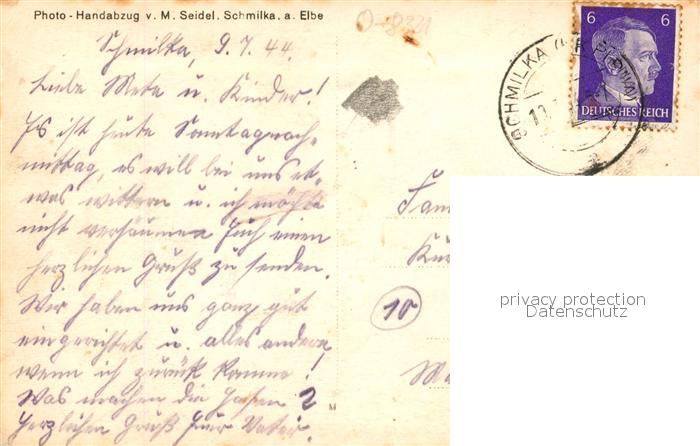 Photo - Handabzug v. M. Seidel. Schmilka. a. Elbe
O-8321
Schmilka, 9.7.44.
Liebe Meta u. Kinder!
Es ist heute Sonntagnach-
mittag, es will bei uns et-
was wittern u. ich möchte
nicht versäumen Euch einen
herzlichen Gruß zu senden.
Wir haben uns ganz gut
eingerichtet u. alles andere,
wenn ich zurück komme!
Was machen die Hasen?
Herzlichen Gruß Euer Vater.
6 6
DEUTSCHES REICH
SCHMILKA
Fam
10
privacy protection
Datenschutz
M